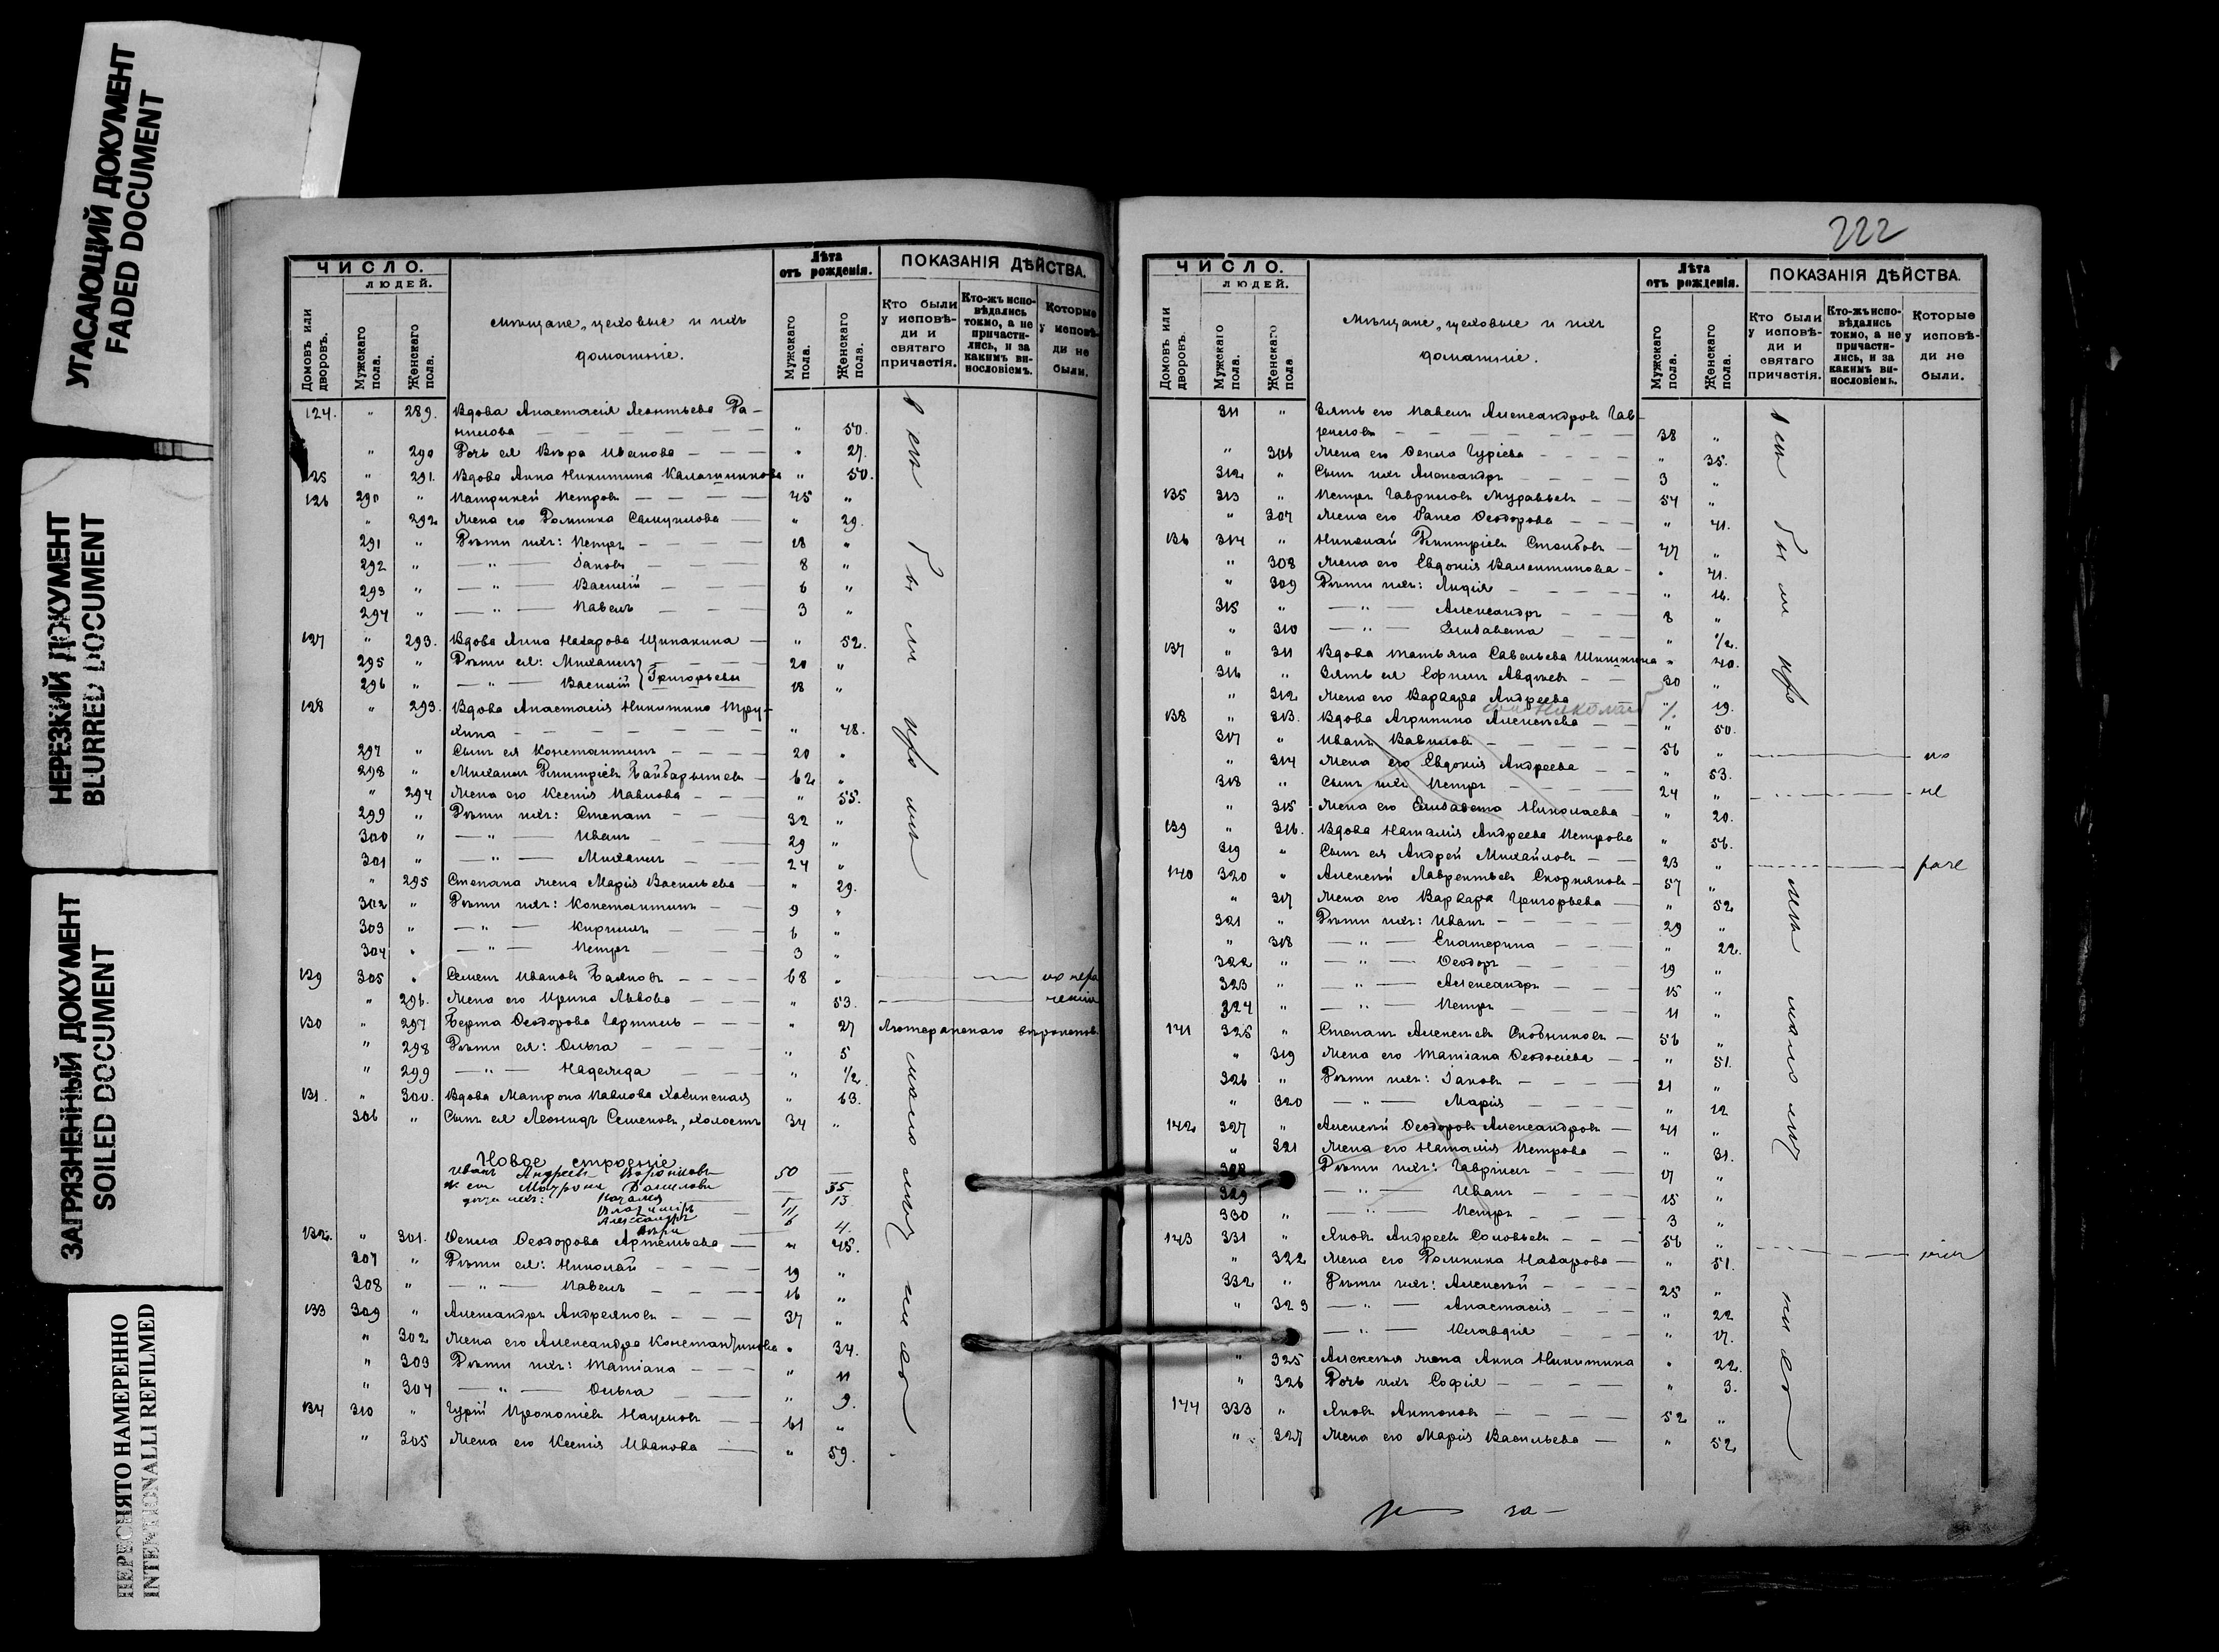 УГАСАЮЩИЙ ДОКУМЕНТ
FADED DOCUMENT
НЕРЕЗКИЙ ДОКУМЕНТ
BLURRED DOCUMENT
ЗАГРЯЗНЕННЫЙ ДОКУМЕНТ
SOILED DOCUMENT
ПЕРЕСНЯТО НАМЕРЕННО
INTENTIONALLI REFILMED
ЧИСЛО.
ЛЮДЕЙ.
Домовъ или дворовъ.
Мужскаго пола.
Женскаго пола.
Мѣщане, цеховые и ихъ
домашніе.
Лѣта
отъ рожденія.
Мужскаго пола.
Женскаго пола.
ПОКАЗАНІЯ ДѢЙСТВА.
Кто были у исповѣди и святаго причастія.
Кто-жъ исповѣдались токмо, а не причастились, и за какимъ винословіемъ.
Которые у исповѣди не были.
124. " 289. Вдова Анастасія Леонтьева
" 50.
" 290 Дочь ея Вѣра Иванова " 27.
125 " 291. Вдова Анна Никитина Калашникова " 50.
126 290 " Патрикей Петровъ 45 "
" 292 Жена его Домника Самуилова " 29.
291 " Дѣти ихъ: Петръ 18 "
292 " — " — Іаковъ 8 "
293 " — " — Василій 6 "
294 " — " — Павелъ 3 "
127 " 293. Вдова Анна Назарова " 52.
295 " Дѣти ея: Михаилъ 20 "
296 " — " — Василій } Григорьевы 18 "
128 " 293. Вдова Анастасія Никитина Тру-
хина " 48.
297 " Сынъ ея Константинъ 20 "
298 " Михаилъ Димитріевъ 62 "
" 294 Жена его Ксенія Павлова " 55.
299 " Дѣти ихъ: Степанъ 32 "
300 " — " — Иванъ 29 "
301 " — " — Михаилъ 24 "
" 295 Степана жена Марія Васильева " 29.
302 " Дѣти ихъ: Константинъ 9 "
303 " — " — Кириллъ 6 "
304 " — " — Петръ 3 "
129 305 " Семенъ Ивановъ Баяновъ 68 "
" 296. Жена его Ирина Львова " 53.
130 " 297 Берта Ѳеодорова " 27 Лютеранскаго вѣроисповѣд.
" 298 Дѣти ея: Ольга " 5
" 299 — " — Надежда " 1/2
131. " 300. Вдова Матрона Павлова " 63.
306 " Сынъ ея Леонидъ Семеновъ, холостъ 34 "
Новое строеніе
Иванъ Андреевъ 50
Матрона Данилова 35
132. " 301. Ѳекла Ѳеодорова Артемьева " 45.
307 " Дѣти ея: Николай 19 "
308 " — " — Павелъ 16 "
133 309 " Александръ Андреяновъ 37 "
" 302 Жена его Александра Константинова " 34.
" 303 Дѣти ихъ: Татіана " 11
" 304 — " — Ольга " 9.
134 310 " Гурій Прокопіевъ Наумовъ 61 "
" 305 Жена его Ксенія Иванова " 59.
222
ЧИСЛО.
ЛЮДЕЙ.
Домовъ или дворовъ.
Мужскаго пола.
Женскаго пола
Мѣщане, цеховые и ихъ
домашніе.
Лѣта
отъ рожденія.
Мужскаго пола.
Женскаго пола.
ПОКАЗАНІЯ ДѢЙСТВА.
Кто были у исповѣди и святаго причастія.
Кто-жъ исповѣдались токмо, а не причастились, и за какимъ винословіемъ.
Которые у исповѣди не были.
311 " Зять его Павелъ Александровъ Гав-
риловъ 38 "
" 306 Жена его Ѳекла Гуріева " 35.
312 " Сынъ ихъ Александръ 3 "
135 313 " Петръ Гавриловъ Муравьевъ 54 "
" 307 Жена его Ѳеодорова " 41.
136 314 " Николай Димитріевъ Столбовъ 47 "
" 308 Жена его Евдокія Валентинова " 41.
" 309 Дѣти ихъ: Лидія " 16.
315 " — " — Александръ 8 "
" 310 — " — Елизавета " 1/2.
137 " 311 Вдова Татьяна Савельева Шишкина " 40.
316 " Зять ея Ефимъ Авдѣевъ 30 "
" 312 Жена его Варвара Андреева " 19.
Николай
138 " 313. Вдова Агрипина Алексѣева " 50.
317 " Иванъ Вавиловъ 56 "
" 314 Жена его Евдокія Андреева " 53.
318 " Сынъ ихъ Петръ 24 "
" 315 Жена его Елизавета Николаева " 20.
139 " 316. Вдова Наталія Андреева Петрова " 56.
319 " Сынъ ея Андрей Михайловъ 23 "
140 320 " Алексѣй Лаврентьевъ Скорняковъ 57 "
" 317 Жена его Варвара Григорьева " 52
321 " Дѣти ихъ: Иванъ 29 "
" 318 — " — Екатерина " 22.
322 " — " — Ѳеодоръ 19 "
323 " — " — Александръ 15 "
324 " — " — Петръ 11 "
141 325 " Степанъ Алексѣевъ 56 "
" 319 Жена его Татіана Ѳеодосіева " 51.
326 " Дѣти ихъ: Іаковъ 21 "
" 320 — " — Марія " 12
142 327 " Алексѣй Ѳеодоровъ Александровъ 41 "
" 321 Жена его Наталія Петрова " 31.
328 " Дѣти ихъ: Гавріилъ 17 "
329 — " — Иванъ 15 "
330 " — " — Петръ 3 "
143 331 " Яковъ Андреевъ Соловьевъ 56 "
" 322 Жена его Домника Назарова " 51.
332 " Дѣти ихъ: Алексѣй 25 "
" 323 — " — Анастасія " 22
— " — Клавдія " 17.
" 325 Алексѣя жена Анна Никитина " 22.
" 326 Дочь ихъ Софія " 3.
144 333 " Яковъ Антоновъ 52 "
" 327 Жена его Марія Васильева " 52